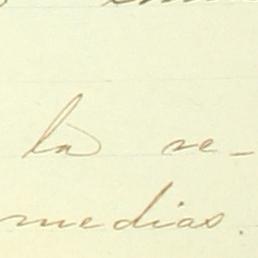 la re-
medias.